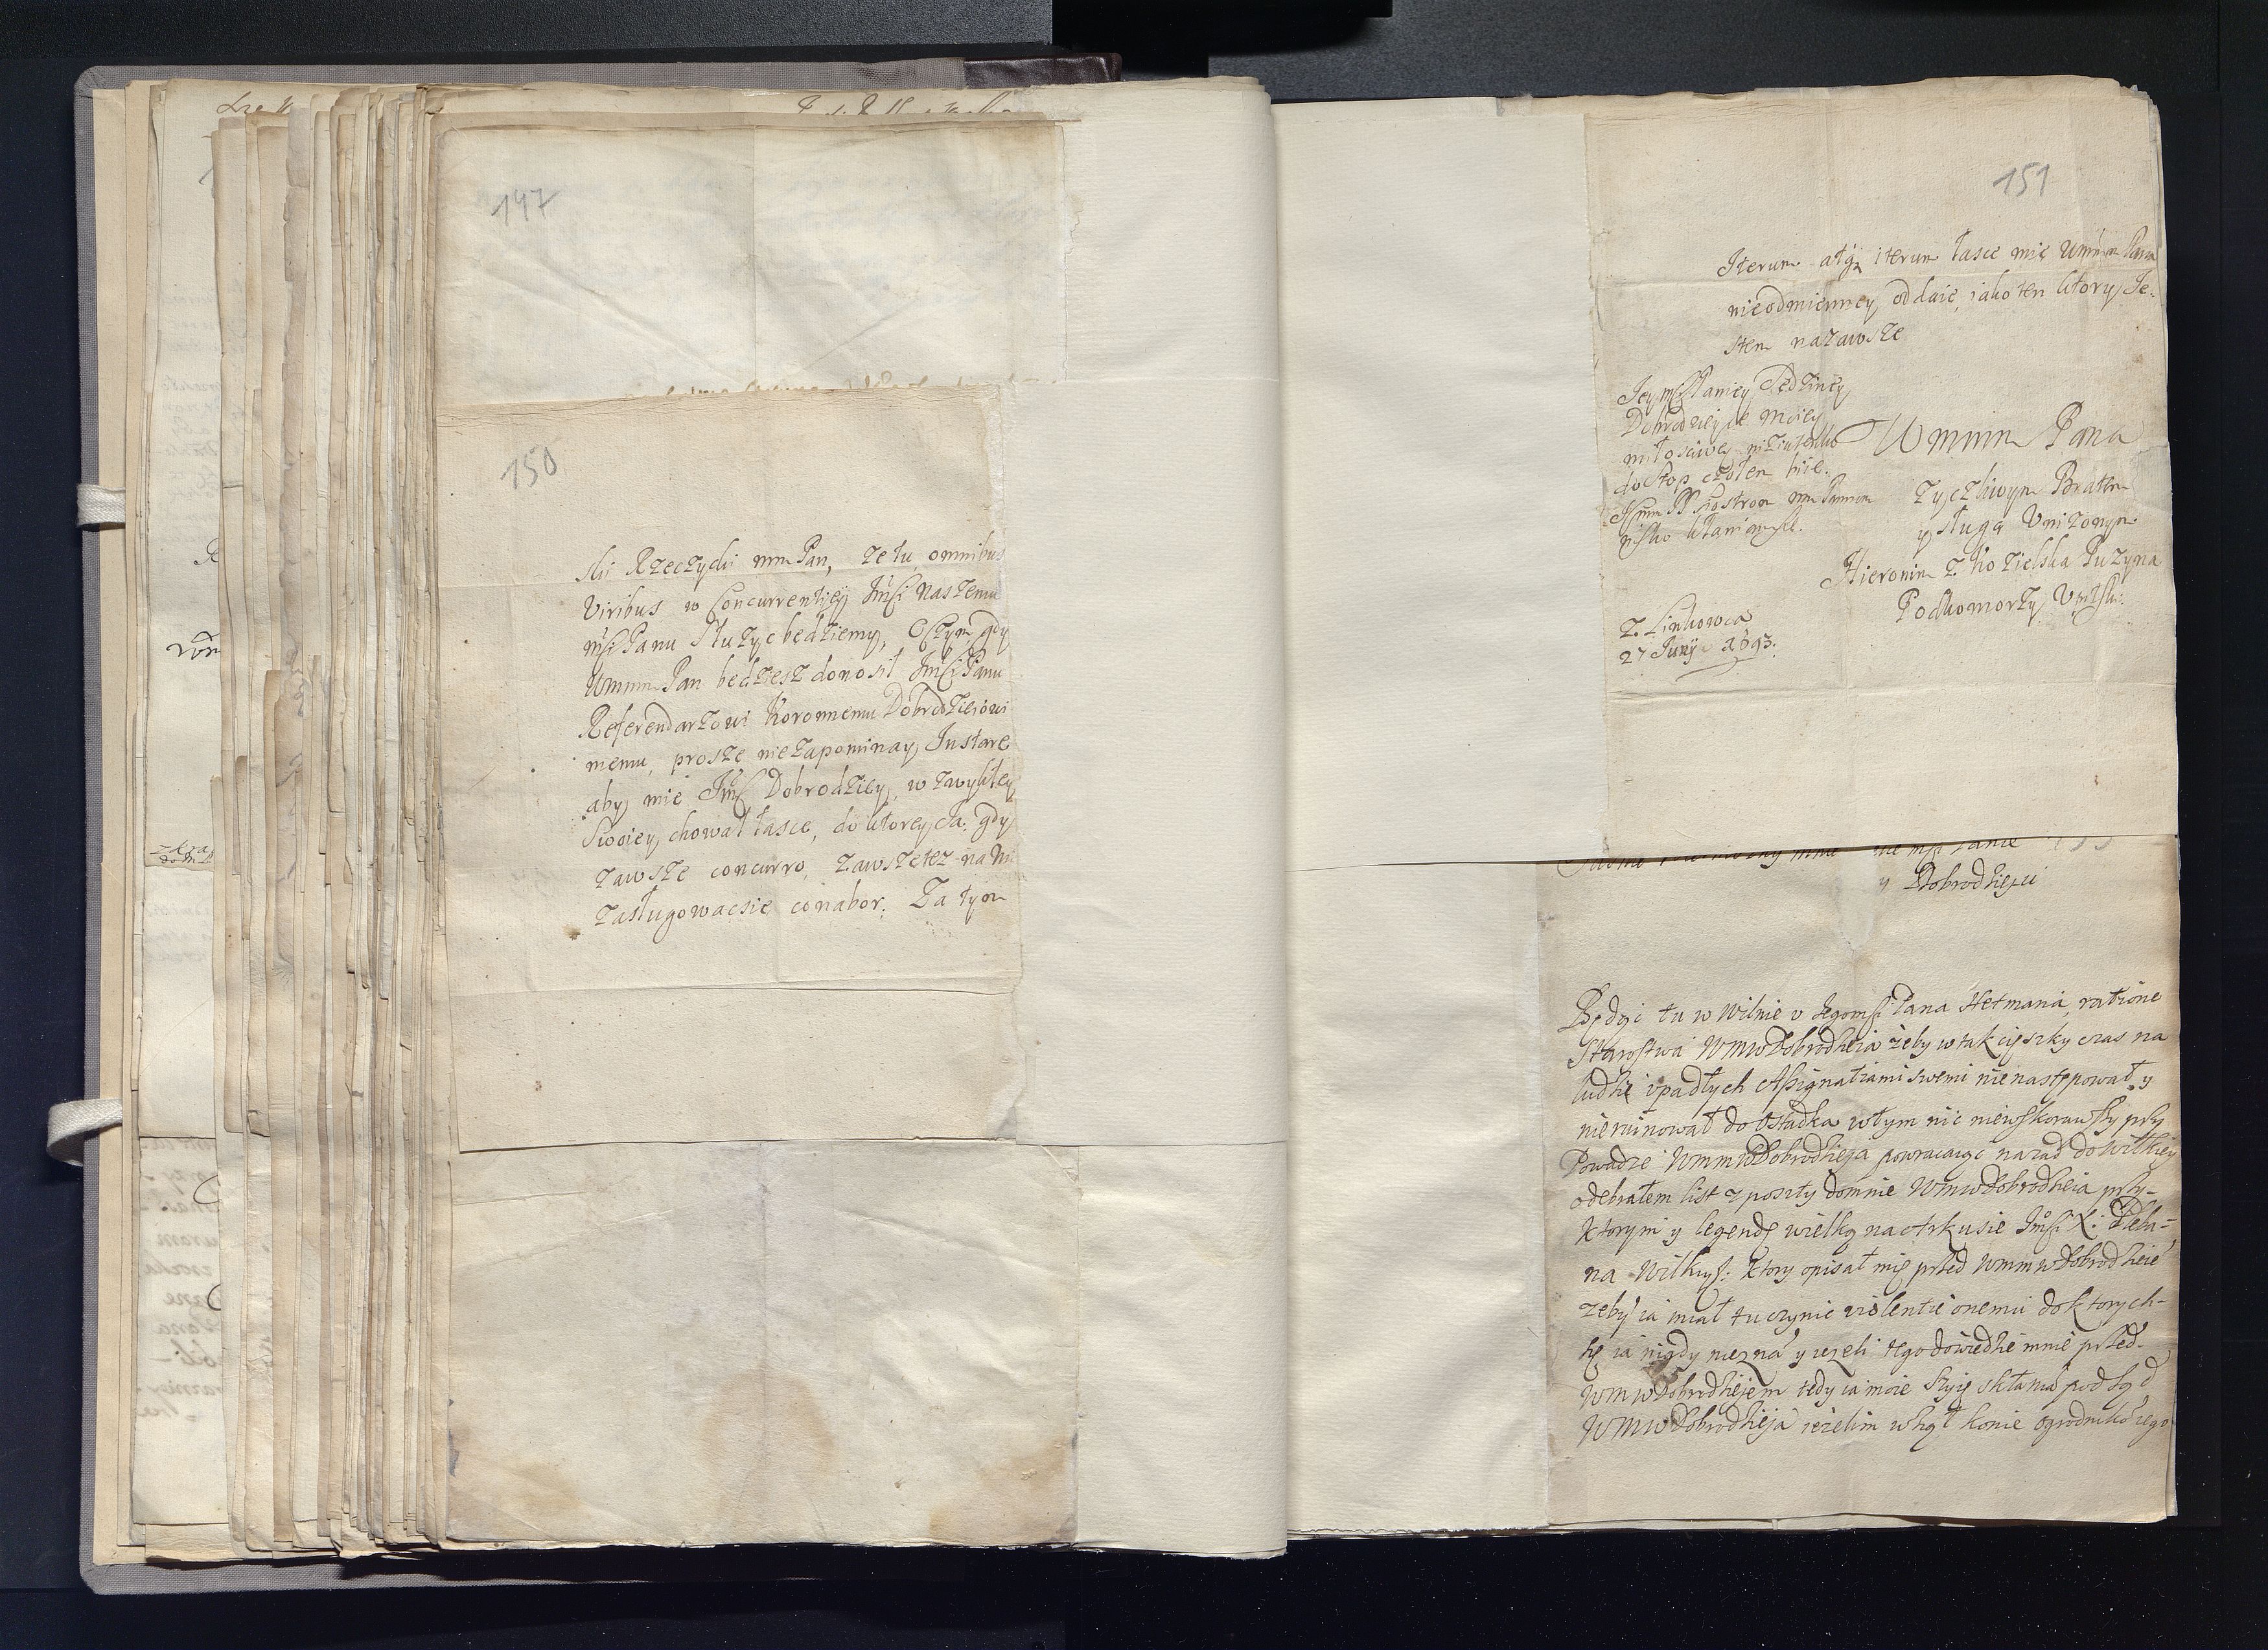 147
150
słu Rzeczydu mm Pan, że tu omnibus
Viribus w Concurrentiey Jmści naszemu
mści Panu Służyc będziemy, O czym gdy
Wmmm Pan będziesz donosił Jmści Panu
Referendarzowi Koronnemu Dobrodzieiowi
memu, prosze nie zapominay Instare
aby mie Jmść Dobrodziey, w zwykłey
Swoiey chował łasce, do ktorey Ja gdy
zawsze concurro, zawsze tez na Nie
zasługowac sie conabor; Za tym
151
Iterum atq iterum łasce mie Wmmm Pana
nieodmienney oddaie, jako ten ktory Je-
stem nazawsze
Jeymści Paniey Sędziney
Dobrodzieyce moiey
miłosciwey niziutenko
do stop czołem biie.
nisko kłaniam sie.
Wmmm Pana
zyczliwym Bratem
y sługą Unizonym
Hieronim z Kozielska Puzyna
Podkomorzy Upitski
Z. Linkowca
27 Junij 1693.
y Dobrodzieju
Będąc tu w Wilnie v Jegomści Pana Hetmana, ratione
Starostwa WMWDobrodzieia żeby w tak cięszky czas na
ludzie vpadłych Assignatiami swemi nie następował y
nie ruinował do ostadka w tym nic niewskorawszy przy
Powadze WMMWDobrodzieja powracaiąc nazad do Wilkiey
odebrałem list z poszty do mnie WMWDobrodzieia przy-
ktorym y legendę wielką na Arkusie Jmści X: Pleba=
na Wilkiys: ktory opisał mię przed WMMWDobrodzieie
zeby ia miał tu czynic violentie onemu do ktorych-
ze ia nigdy niezna y iezeli tego dowiedzie mnie przed-
WMWDobrodziejem tedy ia moie szyię skłama pod sąd
WMWDobrodzieja iezelim wziął konie ogrodniko iego